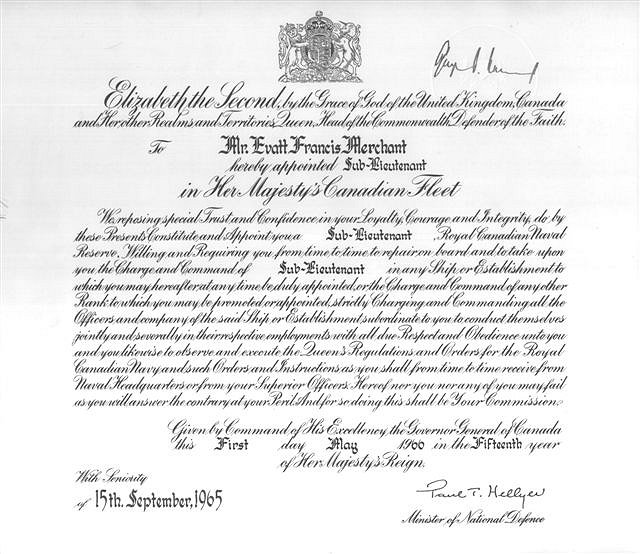 Elizabeth the Second, by the Grace of God of the United Kingdom, Canada
and Her other Realms and Territories Queen, Head of the Commonwealth, Defender of the Faith.
To Mr. Evatt Francis Merchant
hereby appointed Sub-Lieutenant
in Her Majesty's Canadian Fleet
We reposing special Trust and Confidence in your Loyalty, Courage and Integrity, do by
these Presents Constitute and Appoint you a Sub-Lieutenant, Royal Canadian Naval
Reserve, Willing and Requiring you from time to time to repair on board and to take upon
you the Charge and Command of Sub-Lieutenant in any Ship or Establishment to
which you may hereafter at any time be duly appointed, or the Charge and Command of any other
Rank to which you may be promoted or appointed, strictly Charging and Commanding all the
Officers and company of the said Ship or Establishment subordinate to you to conduct themselves
jointly and severally in their respective employments with all due Respect and Obedience unto you
and you likewise to observe and execute the Queen's Regulations and Orders for the Royal
Canadian Navy and such Orders and Instructions as you shall from time to time receive from
Naval Headquarters or from your Superior Officers. Hereof nor you nor any of you may fail
as you will answer the contrary at your Peril. And for so doing this shall be Your Commission.
Given by Command of His Excellency, the Governor General of Canada
this First day May 1966 in the Fifteenth year
of Her Majesty's Reign.
With Seniority
of 15th. September, 1965
Paul T. Hellyer
Minister of National Defence